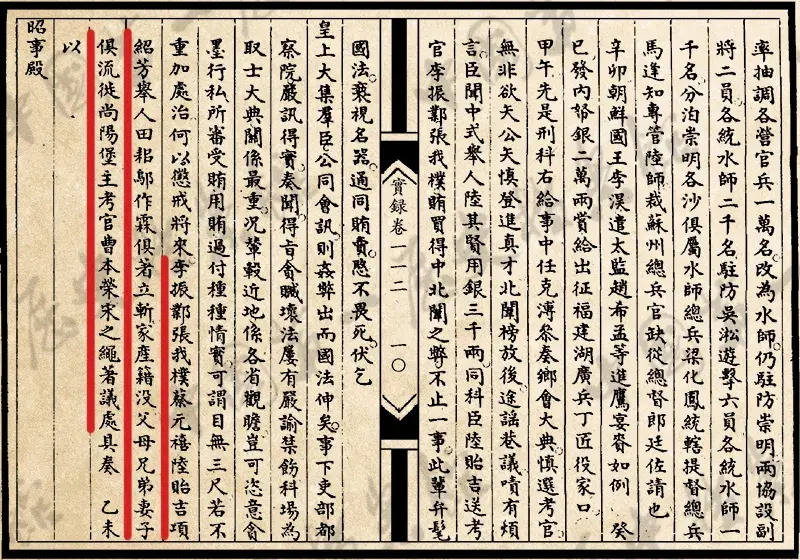 率抽調各營官兵一萬名改為水師仍駐防崇明兩協設副
將二員各統水師二千名駐防吳淞遊擊六員各統水師一
千名分泊崇明各沙俱屬水師總兵梁化鳳統轄提督總兵
馬逢知專管陸師裁蘇州總兵官缺從總督郎廷佐請也
辛卯朝鮮國王李淏遣太監趙希孟等進鷹宴賚如例 癸
巳發內帑銀二萬兩賞給出征福建湖廣兵丁匠役家口
甲午先是刑科右給事中任克溥參奏鄉會大典慎選考官
無非欲矢公矢慎登進真才北闈榜放後途謠巷議嘖有煩
言臣聞中式舉人陸其賢用銀三千兩同科臣陸貽吉送考
官李振鄴張我樸賄買得中北闈之弊不止一事此輩弁髦
實錄卷一一二 一〇
國法褻視名器通同賄賣愍不畏死伏乞
皇上大集羣臣公同會訊則姦弊出而國法伸矣事下吏部都
察院嚴訊得實奏聞得旨貪贓壞法屢有嚴諭禁飭科場為
取士大典關係最重況輦轂近地係各省觀瞻豈可恣意貪
墨行私所審受賄用賄過付種種情實可謂目無三尺若不
重加處治何以懲戒將來李振鄴張我樸蔡元禧陸貽吉項
紹芳舉人田耜鄔作霖俱著立斬家產籍沒父母兄弟妻子
俱流徙尚陽堡主考官曹本榮宋之繩著議處具奏 乙未
以
昭事殿